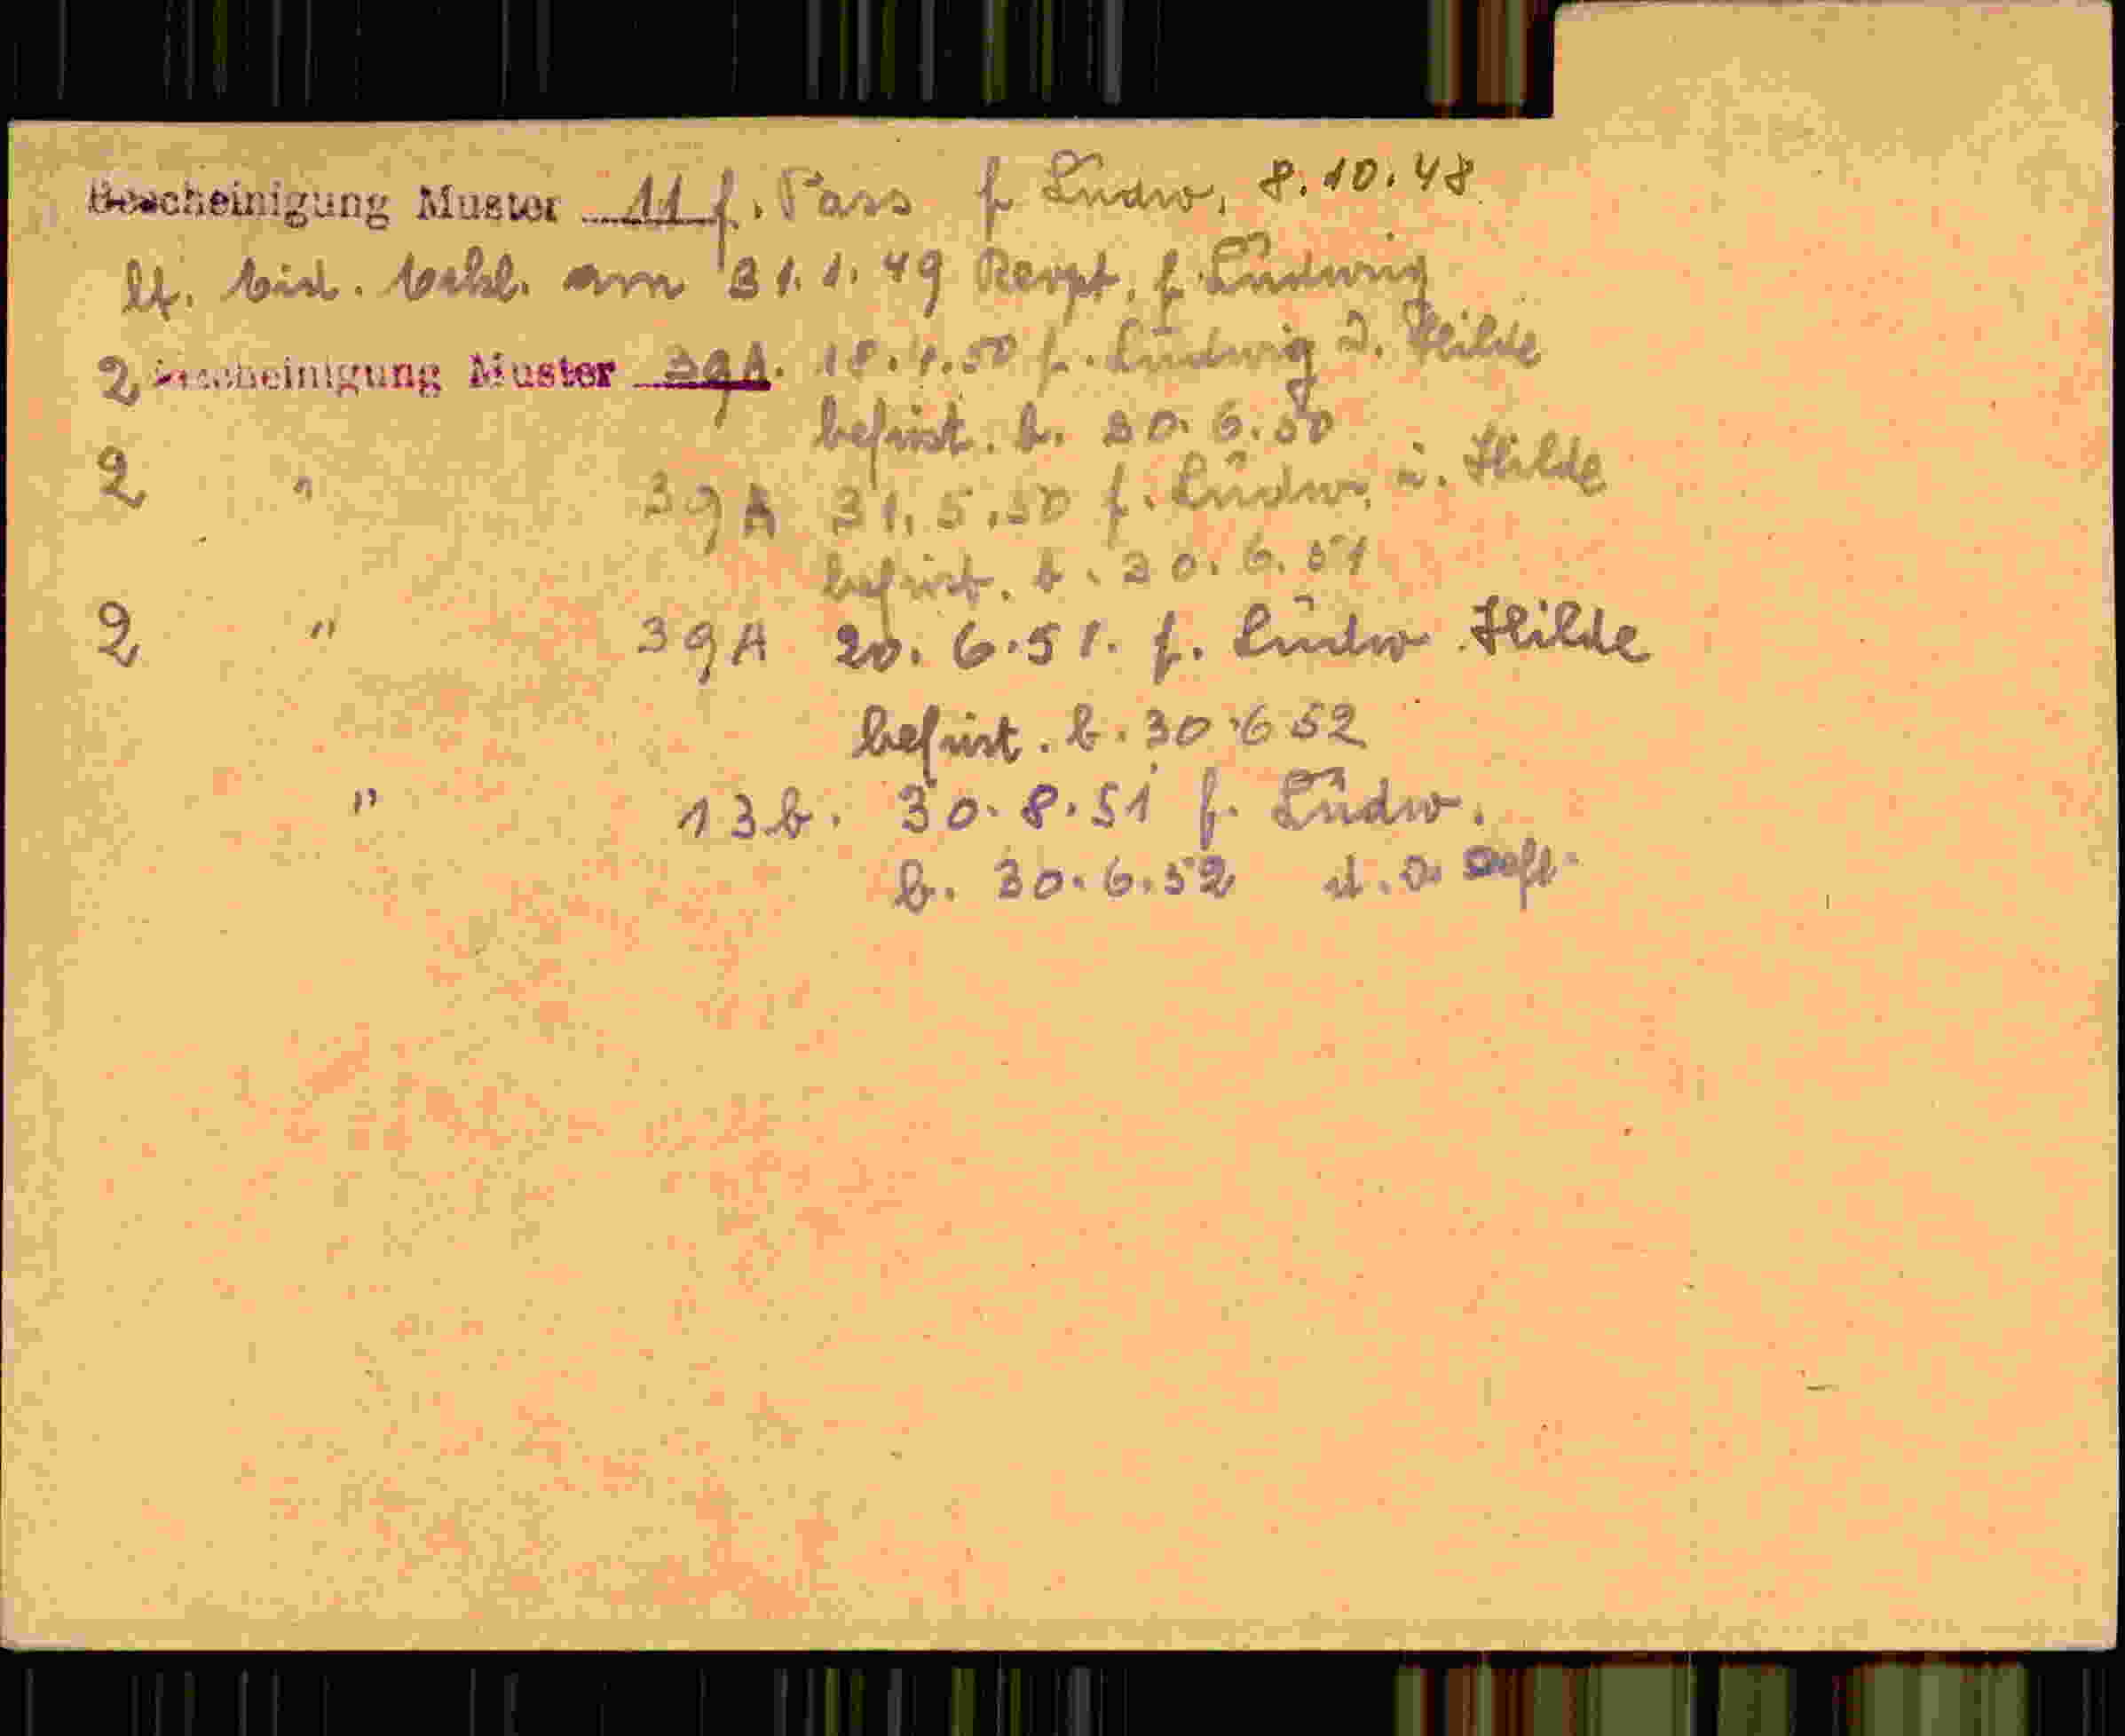 Bescheinigung Muster 11 f. Pass f. Ludw. 8.10.48
lt. am 31.1.49 f. Ludwig
2 Bescheinigung Muster 39A. 18.4.50 f. Ludwig u. Hilde
befrist. b. 30.6.50
2 " 39A 31.5.50 f. Ludw. u. Hilde
befrist. b. 30.6.51
2 " 39A 20.6.51. f. Ludw Hilde
befrist. b. 30.6 52
" 13b. 30.8.51 f. Ludw.
b. 30.6.52